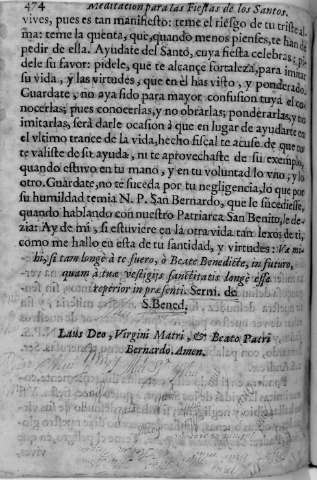 474 Meditacion para las Fiestas de los Santos.
vives, pues es tan manifiesto: teme el riesgo de tu triste al-
ma: teme la quenta, que, quando menos pienses, te han de
pedir de ella. Ayudate del Santo, cuya fiesta celebras: pi-
dele su favor: pidele, que te alcançe fortaleza, para imitar
su vida, y las virtudes, que en èl has visto, y ponderado.
Guardate, no aya sido para mayor confusion tuyà el co-
nocerlas; pues conocerlas, y no obrarlas; ponderarlas, y no
imitarlas, serà darle ocasion à que en lugar de ayudarte en
el vltimo trance de la vida, hecho fiscal te acuse de que no
te valiste de su ayuda, ni te aprovechaste de su exemplo,
quando estuvo en tu mano, y en tu voluntad lo vno; y lo
otro. Guardate, no te suceda por tu negligencia, lo que por
su humildad temia N. P. San Bernardo, que le sucediesse,
quando hablando con nuestro Patriarca San Benito, le de-
zia: Ay de mi, si estuviere en la otra vida tan lexos de ti,
como me hallo en esta de tu santidad, y virtudes: Væ mi-
hi, si tam longè à te fuero, ò Beate Benedicte, in futuro,
quam à tuæ vestigijs sanctitatis longè esse
reperior in præsenti. Serm. de
S. Bened.
Laus Deo, Virgini Matri, & Beato Patri
Bernardo. Amen.